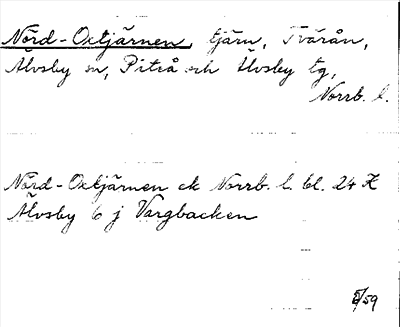 Nörd-Oxtjärnen, tjärn, Tvärån,
Älvsby sn, Piteå och Älvsby tg,
Norrb. l.
Nörd-Oxtjärnen ek Norrb. l. bl. 24 K
Älvsby 6 j Vargbacken
5/59